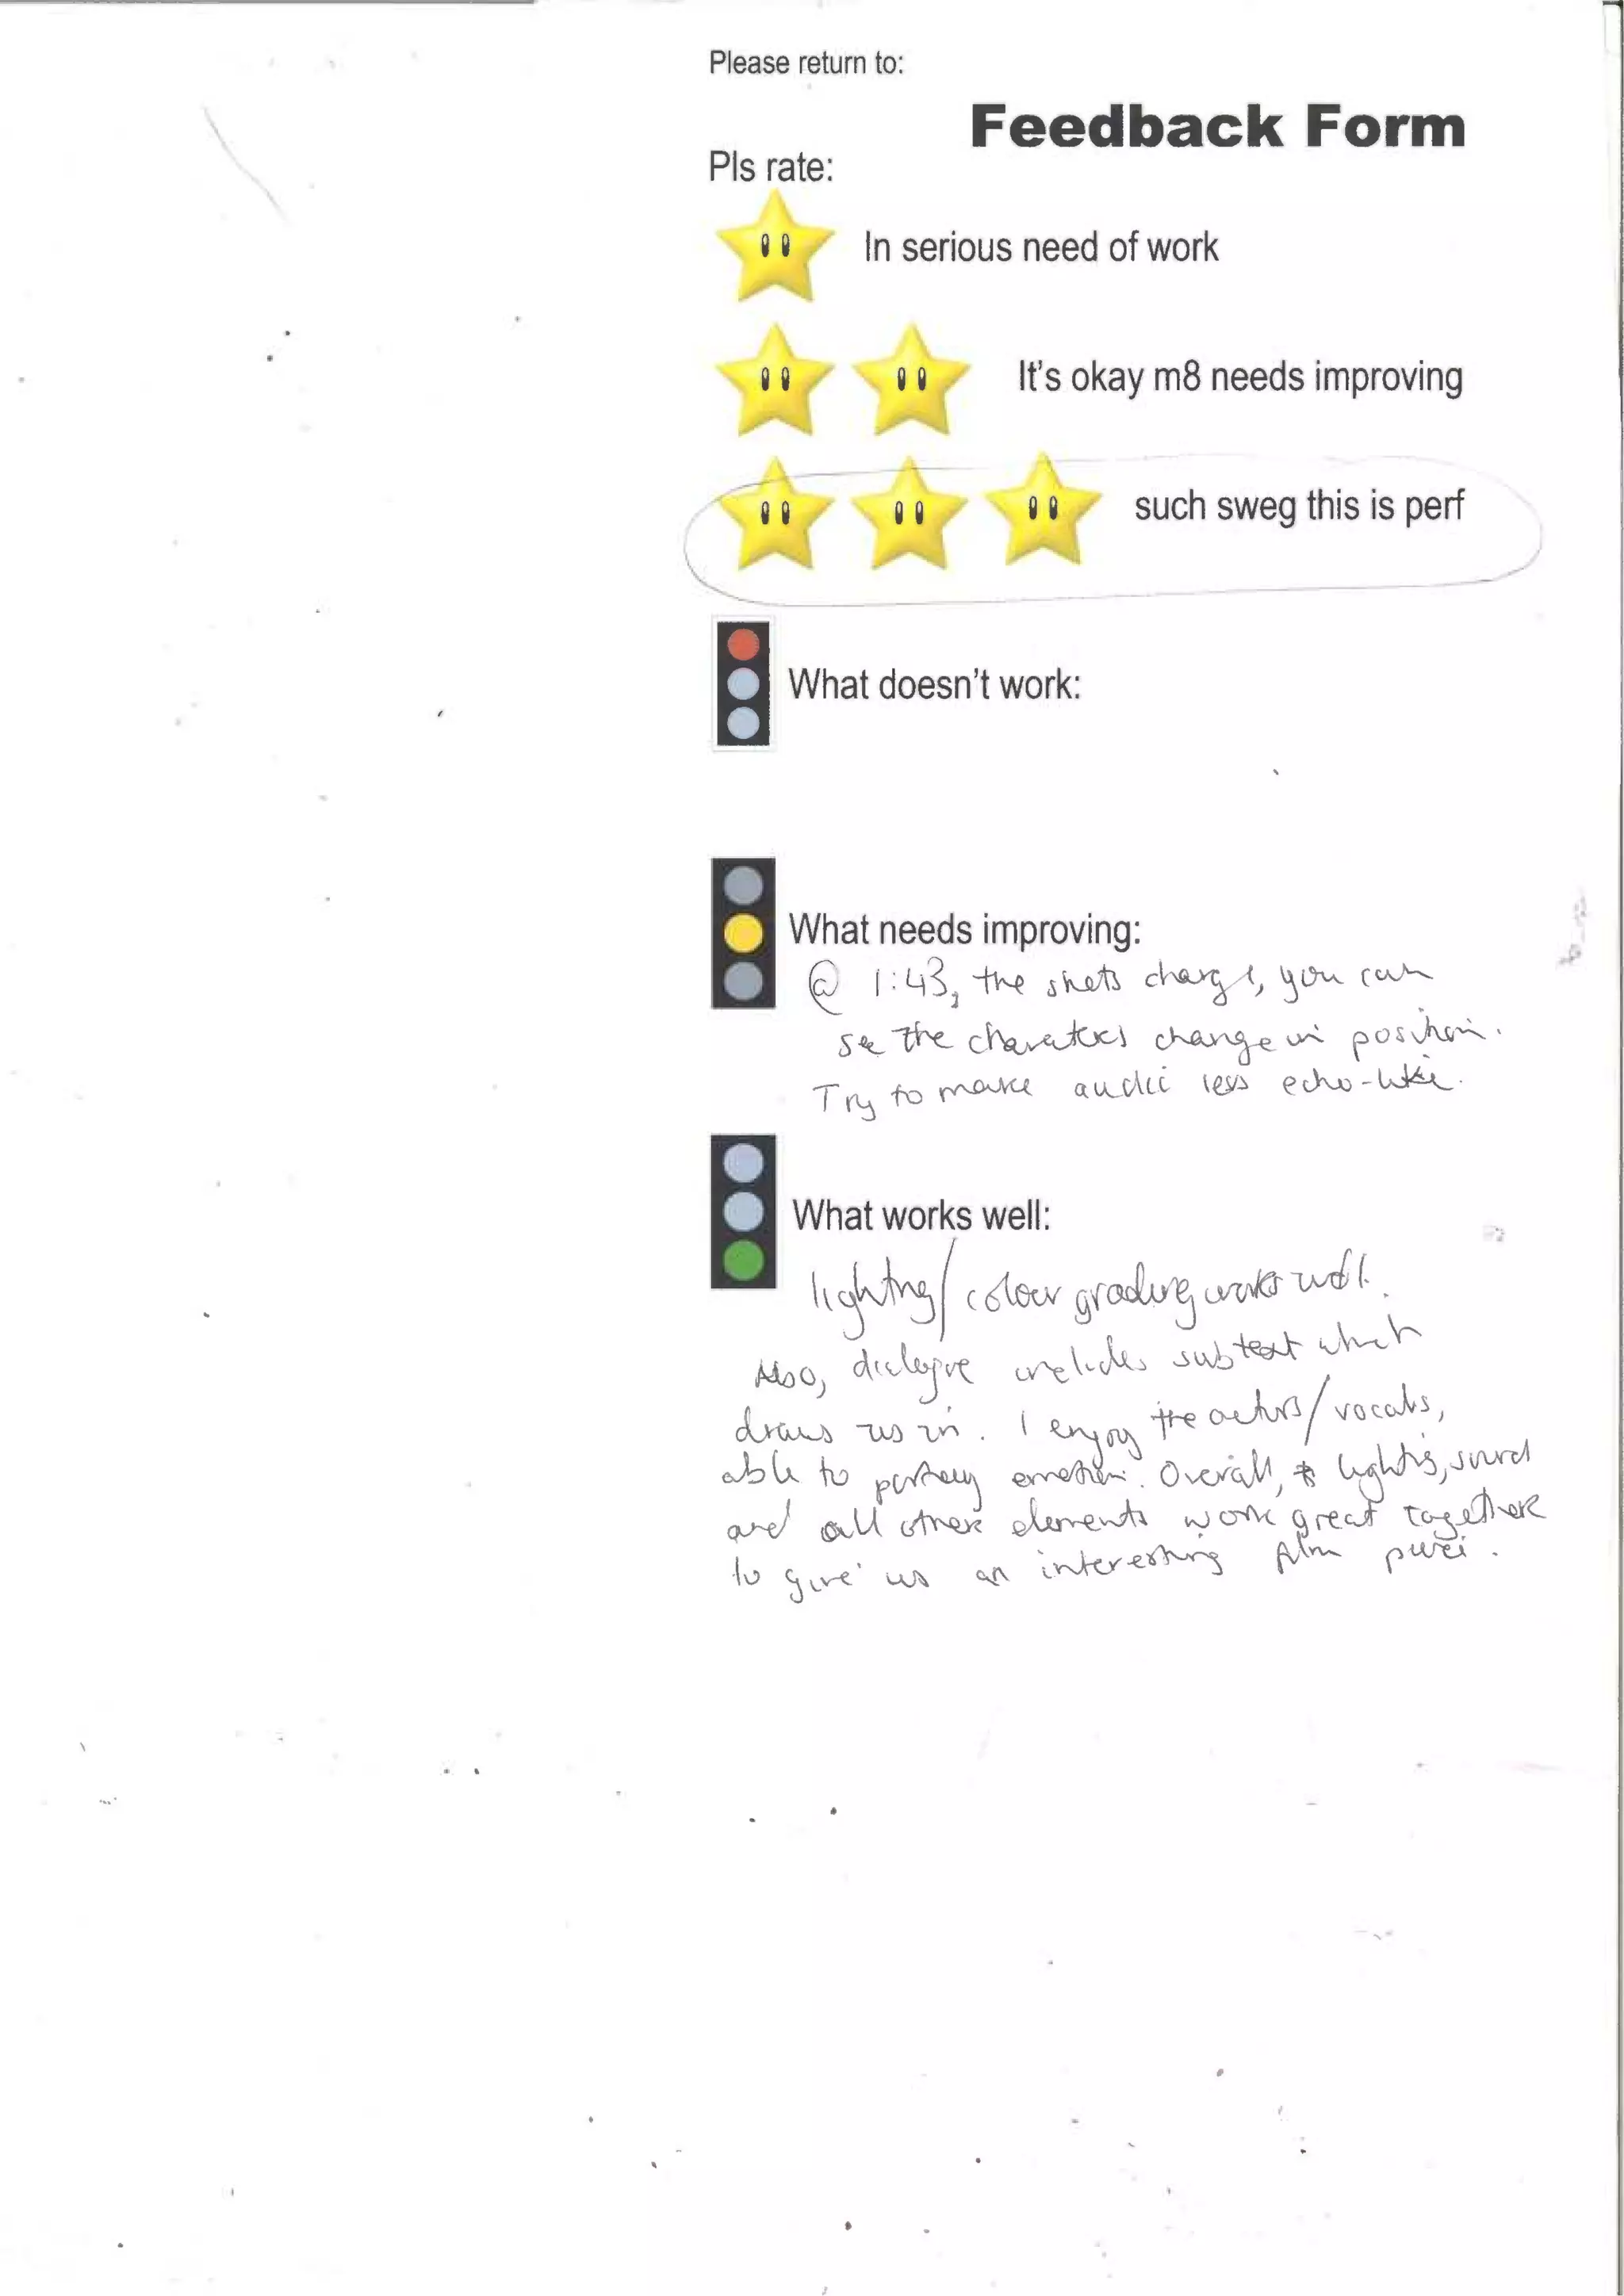 Please return to:
Feedback Form
Pls rate:
In serious need of work
It's okay m8 needs improving
such sweg this is perf
What doesn't work:
What needs improving:
@ 1:43, the shots change, you can
see the characters change in position.
Try to make audio less echo-like.
What works well:
lighting/colour grading works well.
Also, dialogue includes subtext which
draws us in. I enjoy the actors/vocals,
able to portray emotion. Overall, lighting, sound
and all other elements work great together
to give us an interesting film piece.